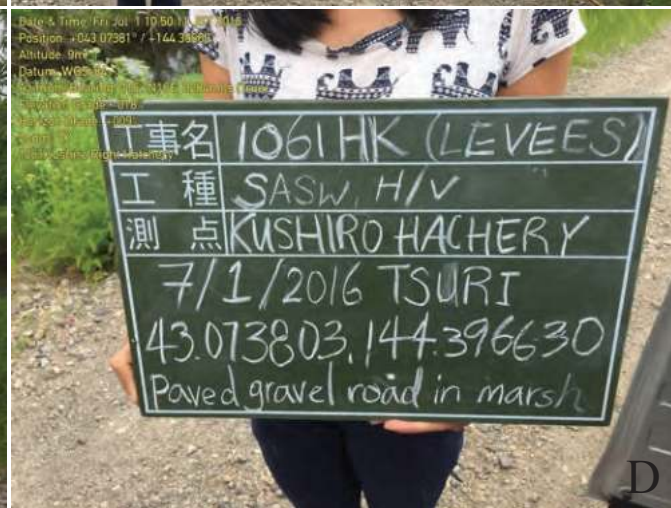 Date & Time: Fri Jul 1 10:50:11 2016
Position: +043.07381° / +144.39
Altitude: 9m
Datum: WGS
工事名 1061 HK (LEVEES)
工種 SASW, H/V
測点 KUSHIRO HACHERY
7/1/2016 TSURI
43.073803, 144.396630
Paved gravel road in marsh
D